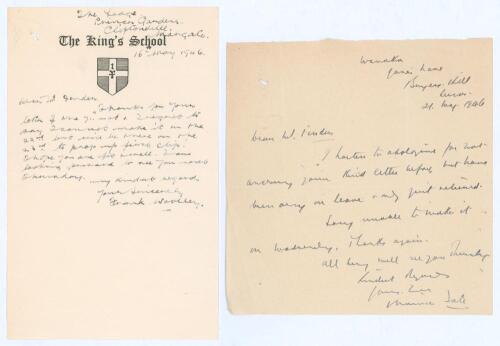 The Lodge
Princes Gardens
Cliftonville
Margate.
The King's School
16th May 1946.
Dear Mr
Thanks for your
letter I regret to
say I cannot make it on the
22nd but will be there on the
23rd to
I hope you are all well. I am
looking forward to see you next
Thursday.
my kindest regards
Yours Sincerely
Frank Woolley.
Wanaka
Lane
Hill
21. May. 1946
Dear Mr.
I hasten to apologise for not
answering your kind letter before but have
been away on leave only just returned.
Sorry unable to make it
on Wednesday. Thanks again.
All being well see you Thursday
Kindest Regards
Yours Sin
Maurice Tate